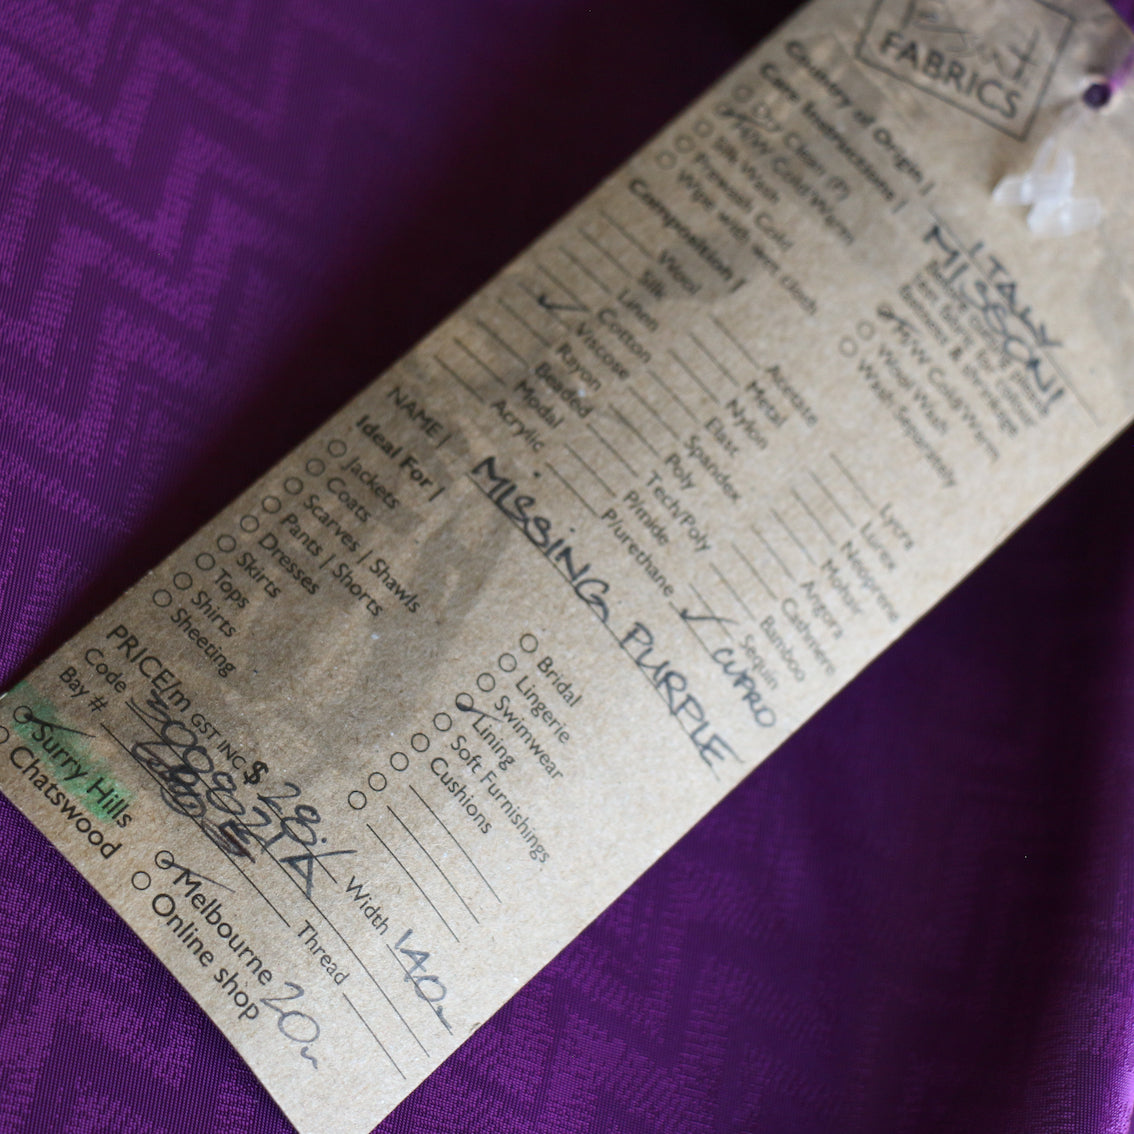 FABRICS
Country of Origin |
ITALY
Care Instructions |
MISSONI
Dry Clean (P)
H/W Cold/Warm
Silk Wash
Prewash Cold
Wipe with wet cloth
M/W Cold/Warm
Wool Wash
Wash Separately
Composition |
Wool
Silk
Linen
Cotton
✓ Viscose
Rayon
Beaded
Modal
Acrylic
Acetate
Metal
Nylon
Elast
Spandex
Poly
Tech/Poly
P/mide
P/urethane
Lycra
Lurex
Neoprene
Mohair
Angora
Cashmere
Bamboo
Sequin
✓ CUPRO
NAME | MISSING PURPLE
Ideal For |
Jackets
Coats
Scarves | Shawls
Pants | Shorts
Dresses
Skirts
Tops
Shirts
Sheeting
Bridal
Lingerie
Swimwear
Lining
Soft Furnishings
Cushions
PRICE/m GST INC $ 28.
Width 140
Code
Bay #
Thread
Surry Hills
Chatswood
Melbourne 20m
Online shop